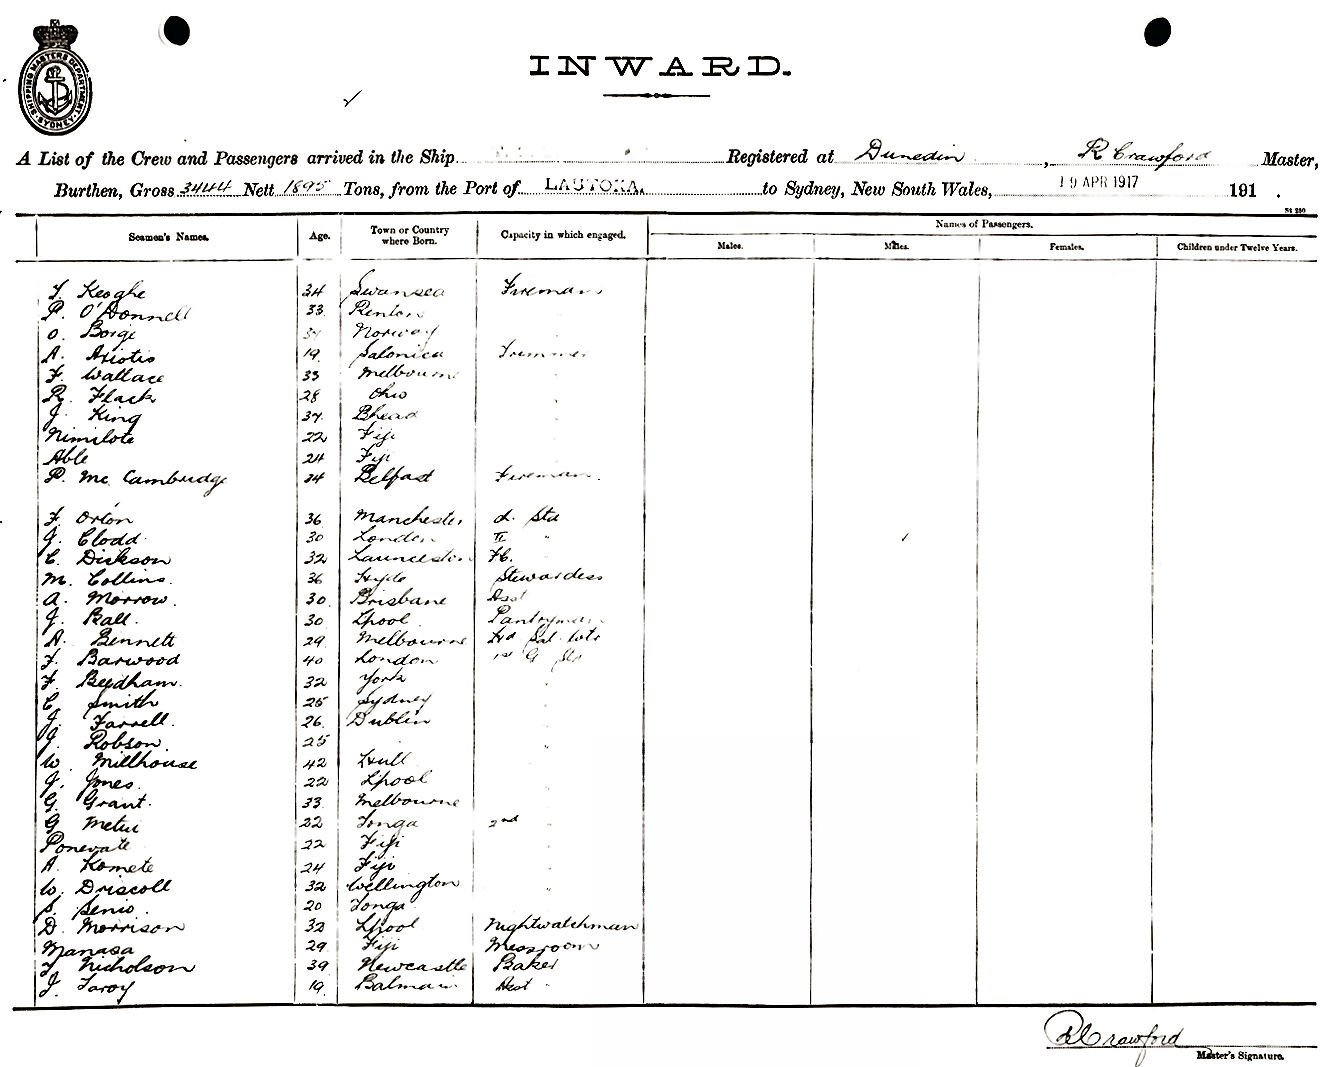 SHIPPING MASTERS DEPARTMENT SYDNEY
INWARD.
A List of the Crew and Passengers arrived in the Ship Registered at Dunedin, R Crawford Master,
Burthen, Gross 3444 Nett 1895 Tons, from the Port of LAUTOKA. to Sydney, New South Wales, 19 APR 1917 191 .
Seamen's Names. Age. Town or Country where Born. Capacity in which engaged. Names of Passengers.
Males. Males. Females. Children under Twelve Years.
T. Keoghe 34 Swansea Fireman
P. O'Donnell 33 Renton "
O. Borge 34 Norway "
A. Axiotis 19 Salonica Trimmer
F. Wallace 33 Melbourne "
R. Flack 28 Ohio "
J. King 34 Bhead "
Nimilote 22 Fiji "
Able 24 Fiji "
P. Mc Cambridge 34 Belfast Fireman.
F. Orton 36 Manchester d. Std
J. Clodd 30 London II "
C. Dickson 32 Launceston Fc. "
M. Collins. 36 Hyde Stewardess
A. Morrow. 30 Brisbane Asst
J. Ball. 30 Lpool Pantryman
A. Bennett 29 Melbourne Hd Sal. Wtr
F. Barwood 40 London 1st G
F. Beedham. 32 York "
C. Smith 25 Sydney "
J. Farrell. 26 Dublin "
J. Robson. 25 "
W. Millhouse 42 Hull "
J. Jones. 22 Lpool "
G. Grant. 33 Melbourne "
G Metui 22 Tonga 2nd "
Ponevate 22 Fiji "
A. Komete 24 Fiji "
W. Driscoll 32 Wellington "
S. Senio. 20 Tonga "
D. Morrison 32 Lpool Nightwatchman
Manasa 29 Fiji Messroom
T. Nicholson 39 Newcastle Baker
J. Taroy 19 Balmain Asst "
R Crawford
Master's Signature.